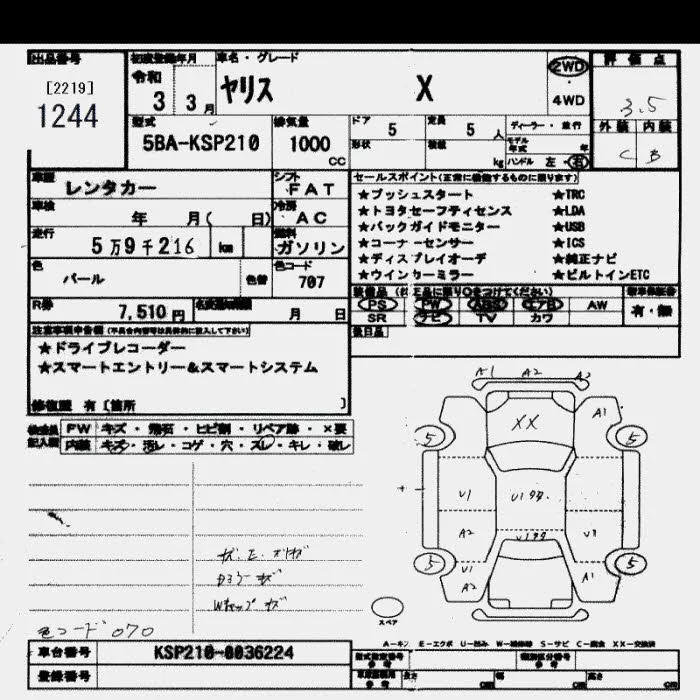 出品番号
[2219]
1244
初度登録年月
令和
3 3月
車名・グレード
ヤリス X
2WD
4WD
評価点
3.5
外装 内装
C B
型式
5BA-KSP210
排気量
1000
CC
ドア
5
定員
5 人
形状
積載
kg
ディーラー・並行
モデル年式 年
ハンドル 左・右
車歴
レンタカー
シフト
FAT
車検
年 月( 日)
冷房
AC
走行
5万9千216 km
燃料
ガソリン
色
パール
色替
カラーコード
707
R券
7,510円
月 日
セールスポイント(正常に機能するものに限ります)
★プッシュスタート ★TRC
★トヨタセーフティセンス ★LDA
★バックガイドモニター ★USB
★コーナーセンサー ★ICS
★ディスプレイオーデ ★純正ナビ
★ウインカーミラー ★ビルトインETC
PS PW ABS エアB AW
SR ナビ TV カワ
有・無
後日品
注意事項申告欄
★ドライブレコーダー
★スマートエントリー&スマートシステム
修復歴 有 [箇所 ]
検査員記入欄
FW キズ・飛石・ヒビ割・リペア跡・×要
内装 キズ・汚レ・コゲ・穴・スレ・キレ・破レ
A1 A2 A2
XX
A1
5 5
U1
A2
U1
A2
A1
5 5
スペア
A-キズ E-エクボ U-凹み W-補修跡 S-サビ C-腐食 XX-交換済
色コード 070
車台番号
KSP210-0036224
登録番号
型式指定番号
参考
類別区分番号
参考
長さ cm
幅 cm
高さ cm